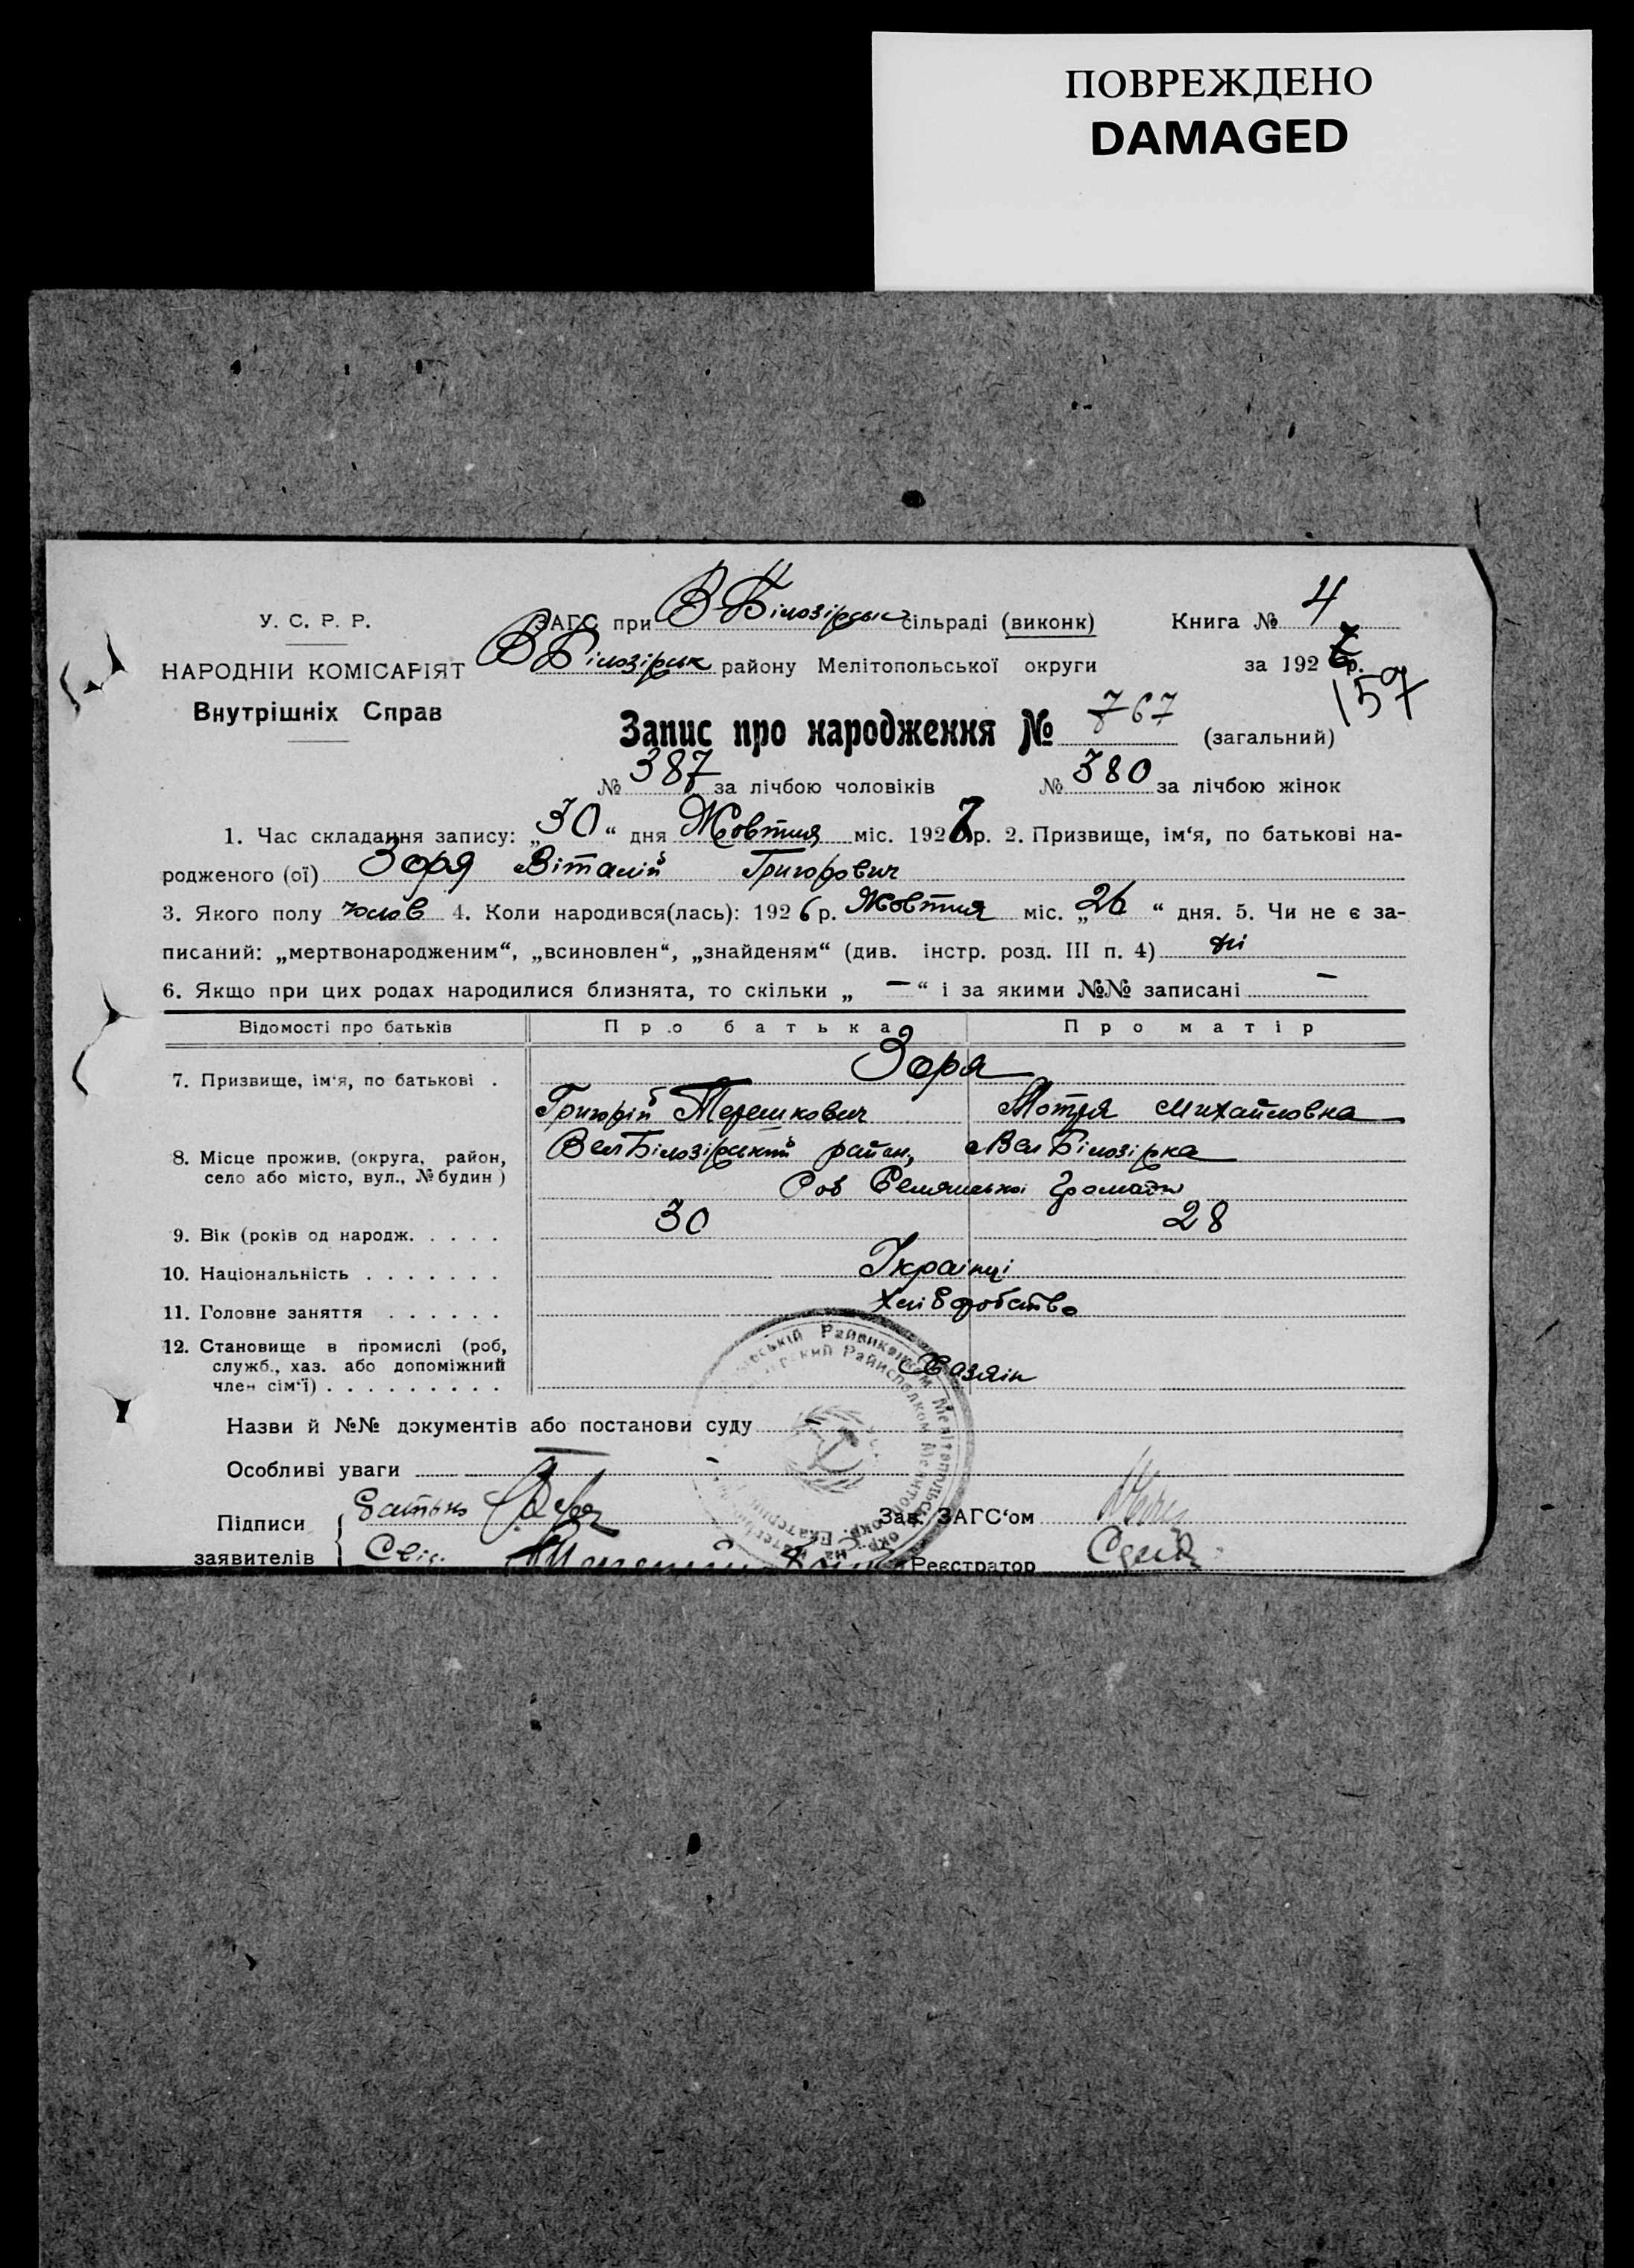 ПОВРЕЖДЕНО
DAMAGED
У. С. Р. Р.
НАРОДНІЙ КОМІСАРІЯТ
Внутрішніх Справ
ЗАГС при В-Білозірськ сільраді (виконк) Книга № 4
В Білозірськ району Мелітопольської округи за 192 р.
157
Запис про народження № 767 (загальний)
№ 387 за лічбою чоловіків № 380 за лічбою жінок
1. Час складання запису: „30“ дня Жовтня міс. 192 р. 2. Призвище, ім‘я, по батькові на-
родженого (ої) Зоря Віталій Григорович
3. Якого полу чолов 4. Коли народився(лась): 1926 р. Жовтня міс. „26“ дня. 5. Чи не є за-
писаний: „мертвонародженим“, „всиновлен“, „знайденям“ (див. інстр. розд. III п. 4) ні
6. Якщо при цих родах народилися близнята, то скільки „ — “ і за якими №№ записані —
Відомості про батьків Про батька Про матір
7. Призвище, ім‘я, по батькові . Зоря
Григорій Терешкович Мотря Михайловна
8. Місце прожив. (округа, район, село або місто, вул., № будин) ВелБілозірський район, Вел Білозірка
громади
9. Вік (років од народж. . . . . 30 28
10. Національність . . . . . . . Українці
11. Головне заняття . . . . . . Хліборобство
12. Становище в промислі (роб, служб., хаз. або допоміжний член сім‘ї) . . . . . . . . . Хазяін
Назви й №№ документів або постанови суду —
Особливі уваги —
Підписи заявителів батько
Свід.
Зав. ЗАГС‘ом
Реєстратор